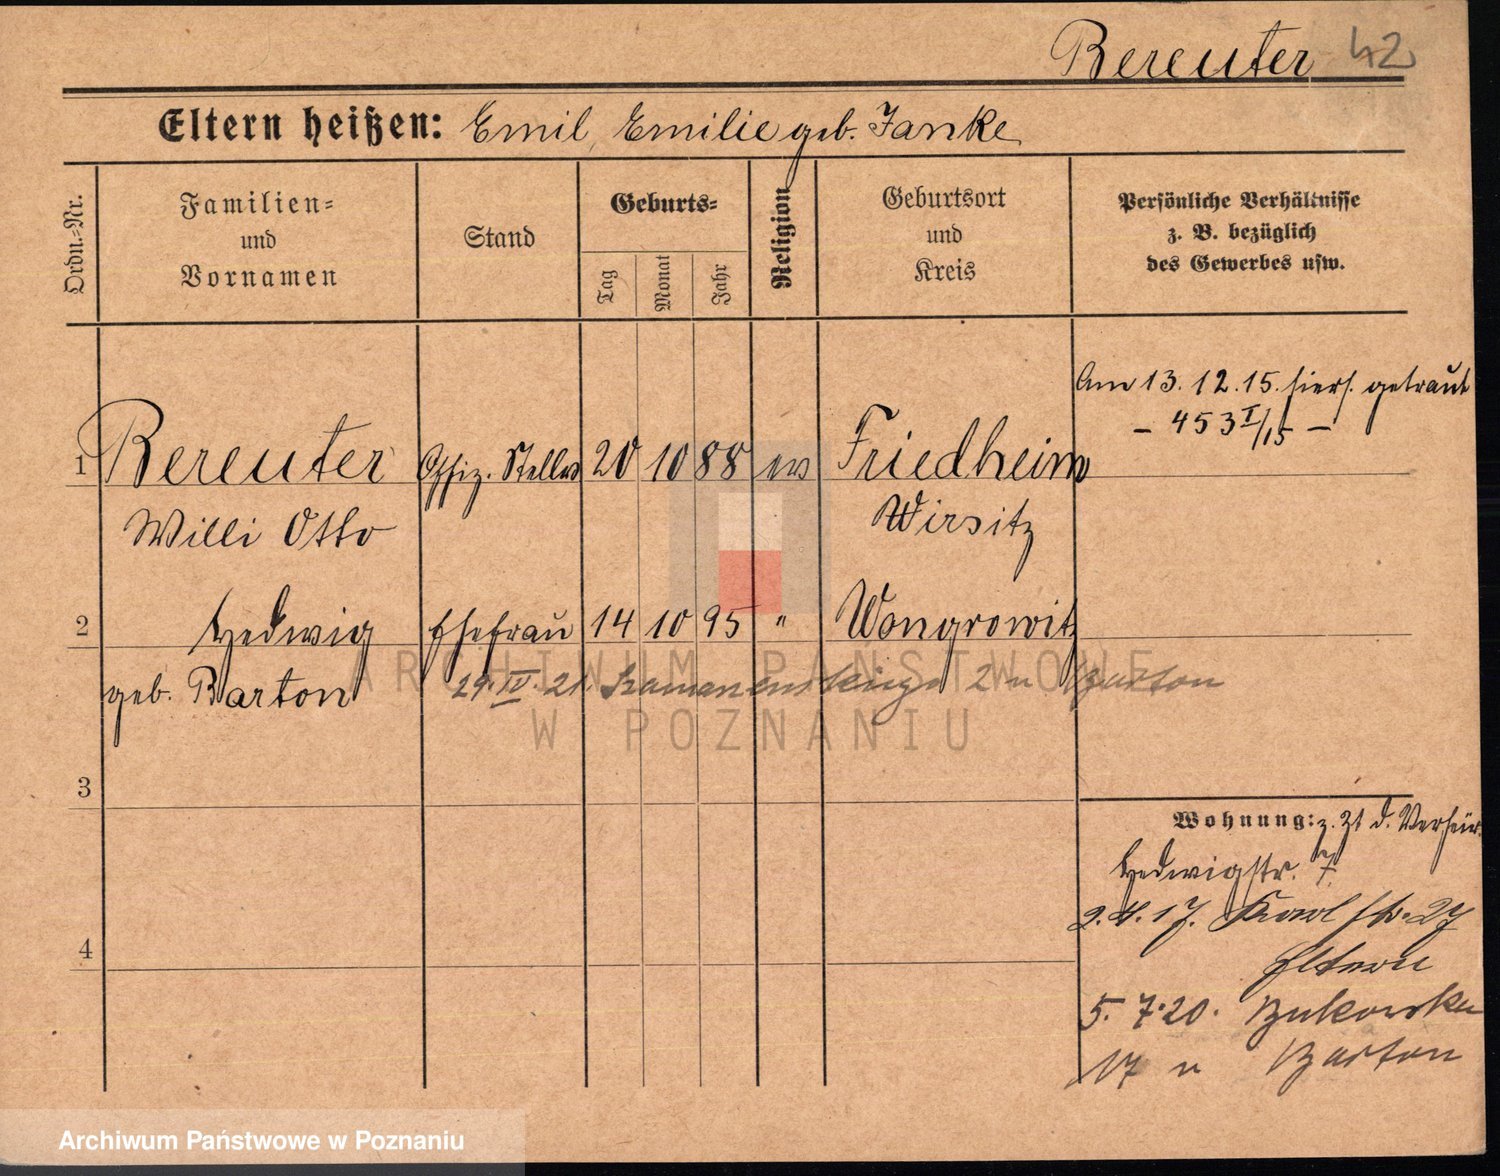 Bereuter 42
Eltern heißen: Emil, Emilie geb. Janke
Ordn.-Nr.
Familien-
und
Vornamen
Stand
Geburts-
Tag
Monat
Jahr
Religion
Geburtsort
und
Kreis
Persönliche Verhältnisse
z. B. bezüglich
des Gewerbes usw.
Am 13. 12. 15. hiers. getraut
- 453 I/15 -
1 Bereuter Offiz. Stellv 20 10 88 ev Friedheim
Willi Otto Wirsitz
2 Hedwig Ehefrau 14 10 95 " Wongrowitz
geb. Barton 29. IV. 21. 2 u Barton
3
Wohnung: z. Zt d. Verheir.
Hedwigstr. 7.
2. 4. 17. Karl str. 27
Eltern
4
5. 7. 20. Bukowska
17 u Barton
ARCHIWUM PAŃSTWOWE
W POZNANIU
Archiwum Państwowe w Poznaniu